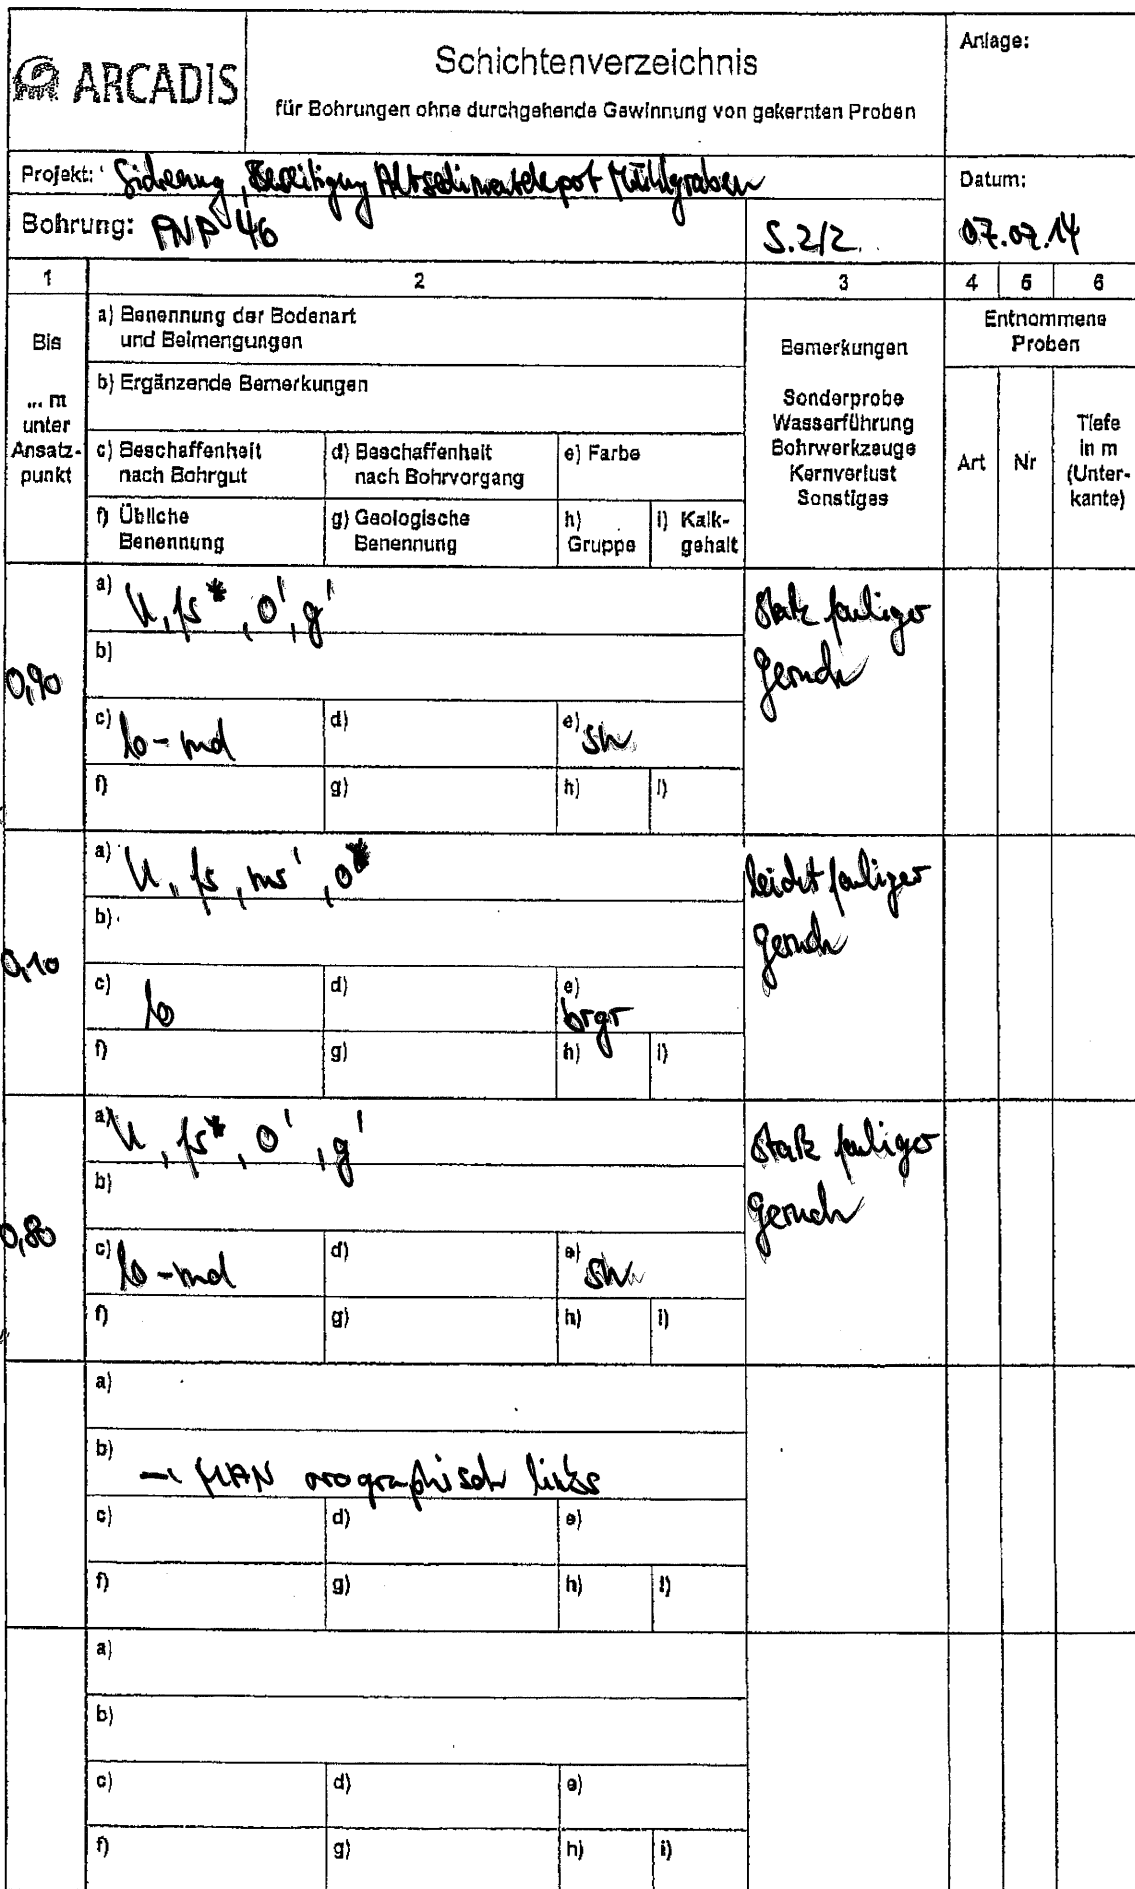 ARCADIS
Schichtenverzeichnis
für Bohrungen ohne durchgehende Gewinnung von gekernten Proben
Anlage:
Projekt: Sicherung, Beseitigung Altsedimentdepot Mühlgraben
Datum:
Bohrung: PNP 46
S. 2/2
07.07.14
1 2 3 4 5 6
Bis
... m
unter
Ansatz-
punkt
a) Benennung der Bodenart
und Beimengungen
b) Ergänzende Bemerkungen
c) Beschaffenheit
nach Bohrgut
d) Beschaffenheit
nach Bohrvorgang
e) Farbe
f) Übliche
Benennung
g) Geologische
Benennung
h)
Gruppe
i) Kalk-
gehalt
Bemerkungen
Sonderprobe
Wasserführung
Bohrwerkzeuge
Kernverlust
Sonstiges
Entnommene
Proben
Art
Nr
Tiefe
in m
(Unter-
kante)
0,90
a) U, fs*, o', g'
b)
c) lo-md
d)
e) sw
f)
g)
h)
i)
stark fauliger
Geruch
0,10
a) U, fs, ms', o*
b)
c) lo
d)
e) brgr
f)
g)
h)
i)
leicht fauliger
Geruch
0,80
a) U, fs*, o', g'
b)
c) lo-md
d)
e) sw
f)
g)
h)
i)
stark fauliger
Geruch
a)
b) MAN orographisch links
c)
d)
e)
f)
g)
h)
i)
a)
b)
c)
d)
e)
f)
g)
h)
i)